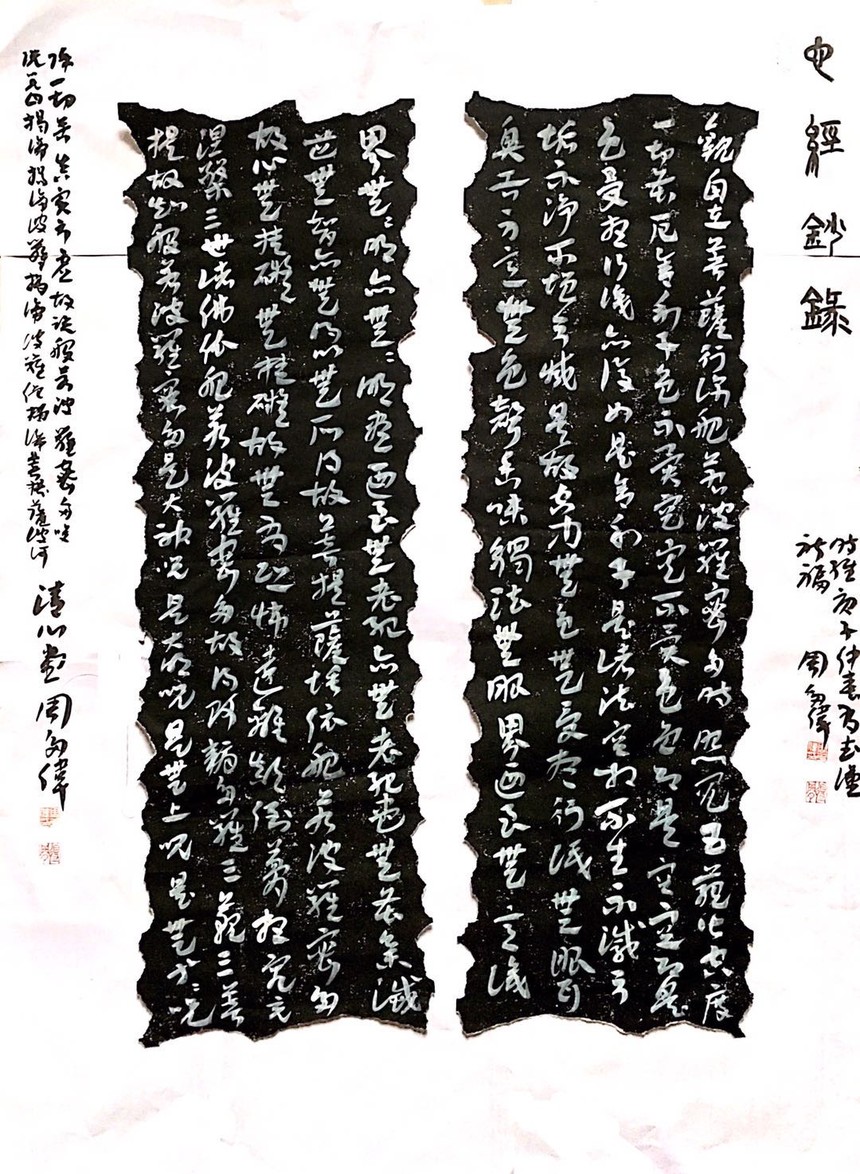 心經鈔錄
時維庚子仲春
祈福 周
觀自在菩薩行深般若波羅蜜多時照見五蘊皆空度
一切苦厄舍利子色不異空空不異色色即是空空即是
色受想行識亦復如是舍利子是諸法空相不生不滅不
垢不淨不增不減是故空中無色無受想行識無眼耳
鼻舌身意無色聲香味觸法無眼界迺至無意識
界無無明亦無無明盡迺至無老死亦無老死盡無苦集滅
道無智亦無得以無所得故菩提薩埵依般若波羅蜜多
故心無挂礙無挂礙故無有恐怖遠離顛倒夢想究竟
涅槃三世諸佛依般若波羅蜜多故得阿耨多羅三藐三菩
提故知般若波羅蜜多是大神咒是大明咒是無上咒是無等等咒
除一切苦真實不虛故說般若波羅蜜多咒
說咒曰揭諦揭諦波羅揭諦波羅僧揭諦菩提薩婆訶
清心堂 周